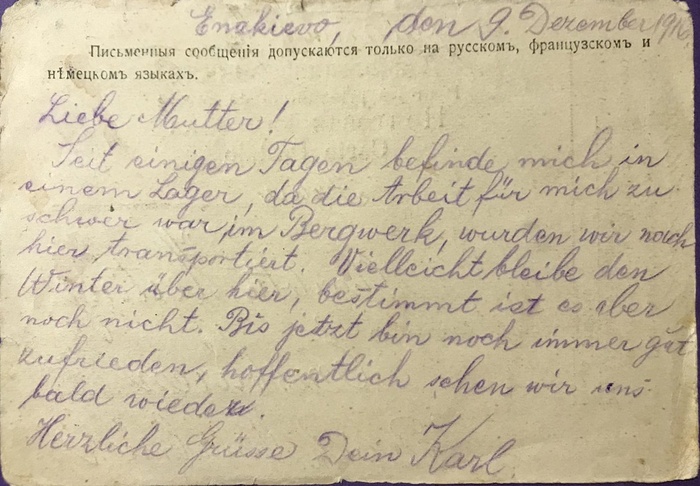 Enakievo, den 9. Dezember 1916
Письменныя сообщенія допускаются только на русскомъ, французскомъ и
нѣмецкомъ языкахъ.
Liebe Mutter!
Seit einigen Tagen befinde mich in
einem Lager, da die Arbeit für mich zu
schwer war, im Bergwerk, wurden wir nach
hier transportiert. Vielleicht bleibe den
Winter über hier, bestimmt ist es aber
noch nicht. Bis jetzt bin noch immer gut
zufrieden, hoffentlich sehen wir uns
bald wieder.
Herzliche Grüsse Dein Karl